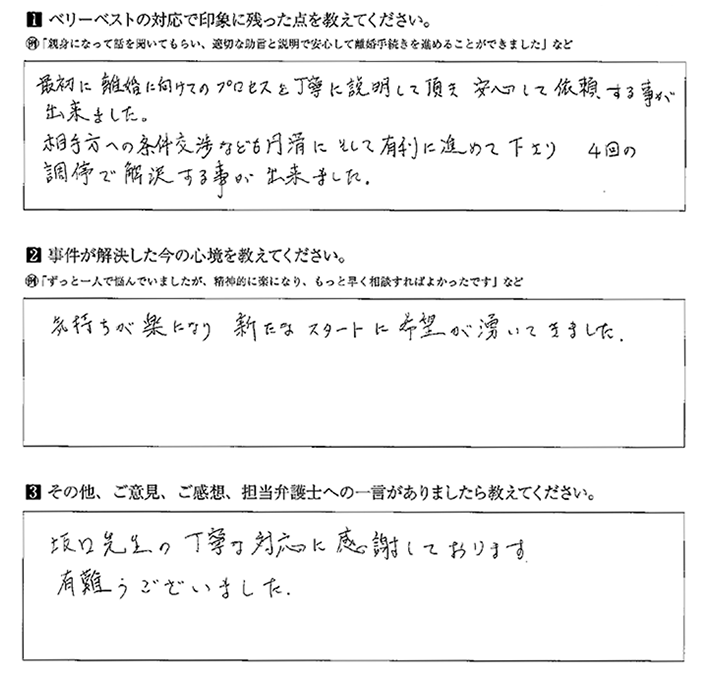 1 ベリーベストの対応で印象に残った点を教えてください。
例「親身になって話を聞いてもらい、適切な助言と説明で安心して離婚手続きを進めることができました」など
最初に 離婚に向けての プロセスを丁寧に説明して頂き 安心して 依頼する事が
出来ました。
相手方への条件交渉なども円滑に そして有利に進めて下さり 4回の
調停で解決する事が 出来ました.
2 事件が解決した今の心境を教えてください。
例「ずっと一人で悩んでいましたが、精神的に楽になり、もっと早く相談すればよかったです」など
気持ちが楽になり 新たなスタートに希望が湧いてきました.
3 その他、ご意見、ご感想、担当弁護士への一言がありましたら教えてください。
坂口先生の 丁寧な対応に感謝しております
有難うございました.